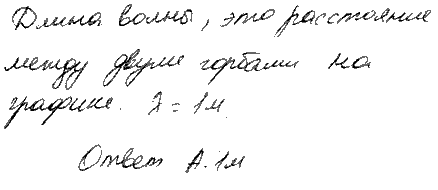 Длина волны, это расстояние
между двумя горбами на
графике. λ = 1м.
Ответ А. 1м